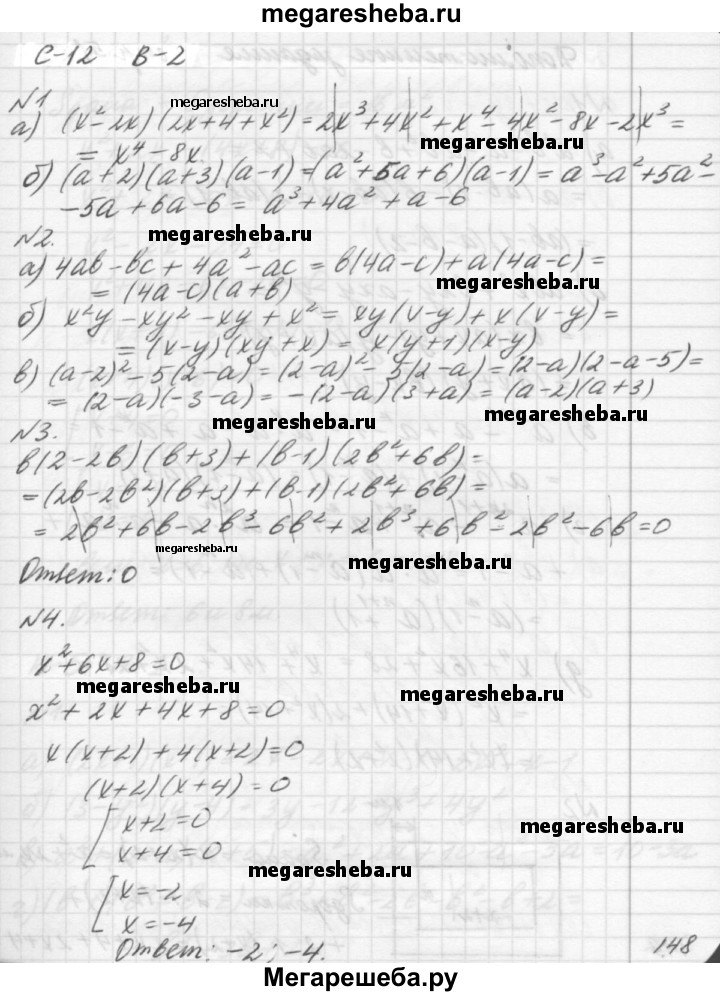 megaresheba.ru
С-12 В-2
№1
megaresheba.ru
а) (x²-2x)(2x+4+x²)=2x³+4x²+x⁴-4x²-8x-2x³=
megaresheba.ru
= x⁴-8x
б) (a+2)(a+3)(a-1)=(a²+5a+6)(a-1)=a³-a²+5a²-
-5a+6a-6= a³+4a²+a-6
№2.
megaresheba.ru
а) 4ab-bc+4a²-ac = b(4a-c)+a(4a-c)=
megaresheba.ru
= (4a-c)(a+b)
б) x²y-xy²-xy+x²= xy(x-y)+x(x-y)=
= (x-y)(xy+x) = x(y+1)(x-y)
в) (a-2)²-5(2-a)=(2-a)²-5(2-a)=(2-a)(2-a-5)=
= (2-a)(-3-a)= -(2-a)(3+a)= (a-2)(a+3)
megaresheba.ru
megaresheba.ru
№3.
b(2-2b)(b+3)+(b-1)(2b²+6b)=
=(2b-2b²)(b+3)+(b-1)(2b²+6b)=
= 2b²+6b-2b³-6b²+2b³+6b²-2b²-6b=0
megaresheba.ru
megaresheba.ru
Ответ: 0
№4.
x²+6x+8=0
megaresheba.ru
megaresheba.ru
x²+2x+4x+8=0
x(x+2)+4(x+2)=0
(x+2)(x+4)=0
x+2=0
megaresheba.ru
x+4=0
megaresheba.ru
x=-2
x=-4
Ответ: -2; -4.
148
Мегарешеба.ру